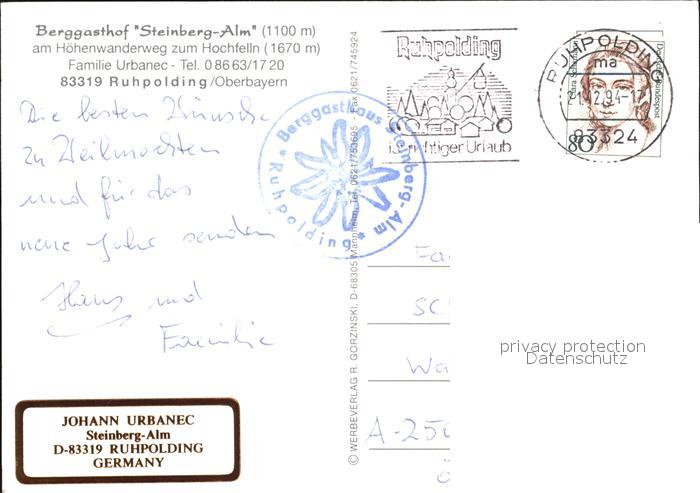 Berggasthof "Steinberg-Alm" (1100 m)
am Höhenwanderweg zum Hochfelln (1670 m)
Familie Urbanec - Tel. 0 86 63/17 20
83319 Ruhpolding/Oberbayern
Die besten Wünsche
zu Weihnachten
und für das
neue Jahr senden
Hans und
Familie
JOHANN URBANEC
Steinberg-Alm
D-83319 RUHPOLDING
GERMANY
Berggasthaus Steinberg-Alm
* Ruhpolding *
© WERBEVERLAG R. GORZINSKI, D-68305 Mannheim, Tel. 0621/753695 - Fax 0621/745924
Ruhpolding
richtiger Urlaub
RUHPOLDING
ma
.12.94-17
83324
Deutsche Bundespost
80
Fa
SC
Wa
A-250
privacy protection
Datenschutz